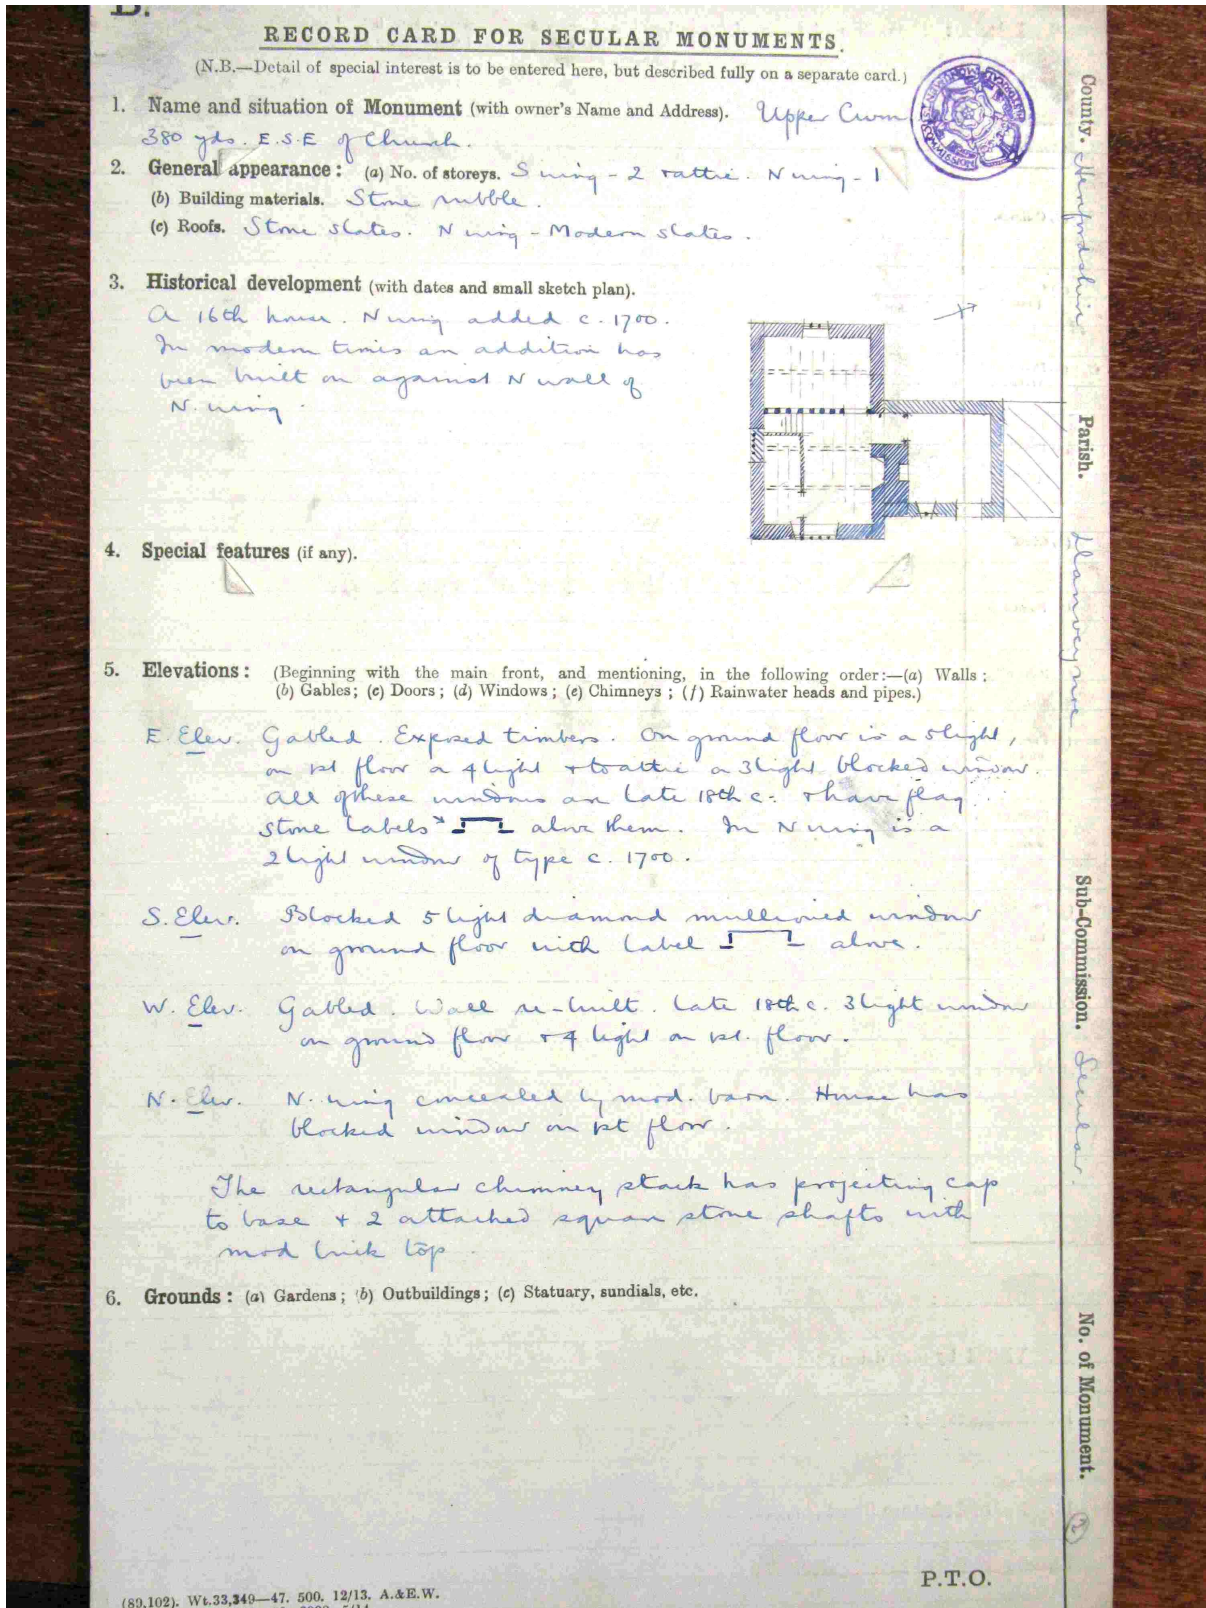 B.
RECORD CARD FOR SECULAR MONUMENTS.
(N.B.—Detail of special interest is to be entered here, but described fully on a separate card.)
1. Name and situation of Monument (with owner's Name and Address). Upper Cwm
380 yds. E.S.E of Church.
2. General appearance: (a) No. of storeys. S wing - 2 + attic. N wing - 1
(b) Building materials. Stone rubble.
(c) Roofs. Stone slates. N wing - Modern slates.
3. Historical development (with dates and small sketch plan).
A 16th house. N wing added c. 1700.
In modern times an addition has
been built on against N wall of
N. wing.
4. Special features (if any).
5. Elevations: (Beginning with the main front, and mentioning, in the following order:—(a) Walls;
(b) Gables; (c) Doors; (d) Windows; (e) Chimneys; (f) Rainwater heads and pipes.)
E. Elev. Gabled. Exposed timbers. On ground floor is a 5 light,
on 1st floor a 4 light + to attic a 3 light blocked window.
All of these windows are late 18th c. + have flag
stone labels above them. In N wing is a
2 light window of type c. 1700.
S. Elev. Blocked 5 light diamond mullioned window
on ground floor with label above.
W. Elev. Gabled. Wall re-built. Late 18th c. 3 light window
on ground floor + 4 light on 1st. floor.
N. Elev. N. wing concealed by mod. barn. House has
blocked window on 1st floor.
The rectangular chimney stack has projecting cap
to base + 2 attached square stone shafts with
mod brick top.
6. Grounds: (a) Gardens; (b) Outbuildings; (c) Statuary, sundials, etc.
P.T.O.
(89,102). Wt.33,349—47. 500. 12/13. A.&E.W.
County. Herefordshire
Parish. Llanveynoe
Sub-Commission. Secular.
No. of Monument. 2